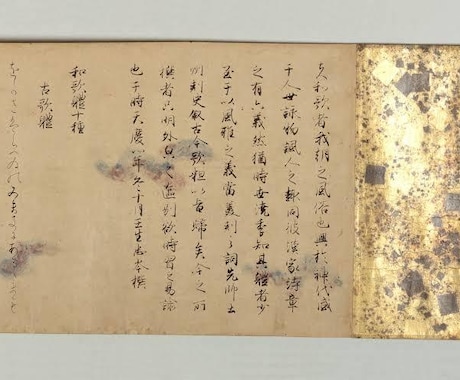 夫和歌者我朝之風俗也興於神代盛
于人世詠物諷人之趣同彼漢家詩章
之有六義然猶時世澆季知其體者少
至于以風雅之義當美刺之詞先師土
州刺史叙古今歌粗以旨歸矣今之所
撰者只明外皃之區別欲時習之易諭
也于時天慶八年冬十月壬生忠岑撰
和歌體十種
古歌體